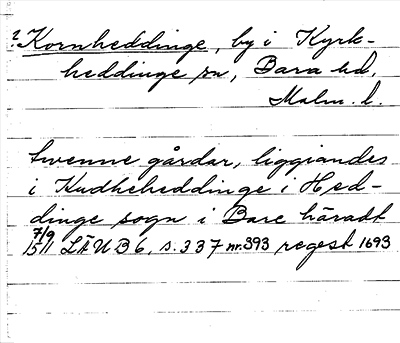 ? Kornheddinge, by i Kyrk-
heddinge sn, Bara hd,
Malm. l.
Twenne gårdar, liggiandes
i Kudheheddinge i Hed-
dinge sogn i Bare häradt
7/9 1511 LÄUB 6, s. 337 nr. 393 regest 1693